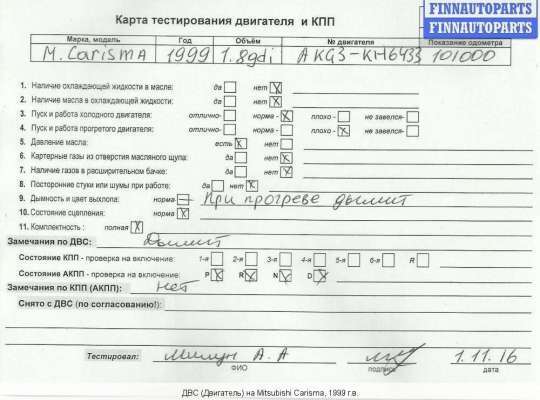 FINNAUTOPARTS
FINNAUTOPARTS
Карта тестирования двигателя и КПП
Марка, модель Год Объём № двигателя Показание одометра
M. Carisma 1999 1.8gdi AKG3-KH6433 101000
1. Наличие охлаждающей жидкости в масле: да нет X
2. Наличие масла в охлаждающей жидкости: да нет X
3. Пуск и работа холодного двигателя: отлично- норма - X плохо - не завелся-
4. Пуск и работа прогретого двигателя: отлично- норма - плохо - X не завелся-
5. Давление масла: есть X нет
6. Картерные газы из отверстия масляного щупа: да нет X
7. Наличие газов в расширительном бачке: да нет X
8. Посторонние стуки или шумы при работе: да нет X
9. Дымность и цвет выхлопа: норма При прогреве дымит
10. Состояние сцепления: норма X
11. Комплектность : полная X
Замечания по ДВС: Дымит
Состояние КПП - проверка на включение: 1-я 2-я 3-я 4-я 5-я 6-я R
Состояние АКПП - проверка на включение: P X R X N X D X
Замечания по КПП (АКПП): Нет
Снято с ДВС (по согласованию!):
Тестировал: А.А 1.11.16
ФИО подпись дата
ДВС (Двигатель) на Mitsubishi Carisma, 1999 г.в.